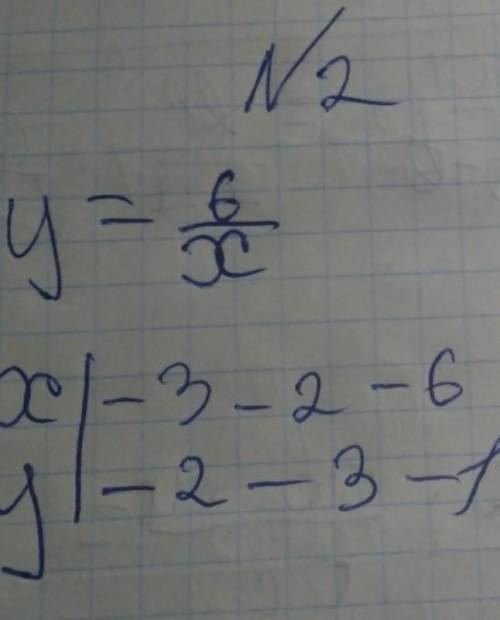 №2
y = 6/x
x | -3 -2 -6
y | -2 -3 -1